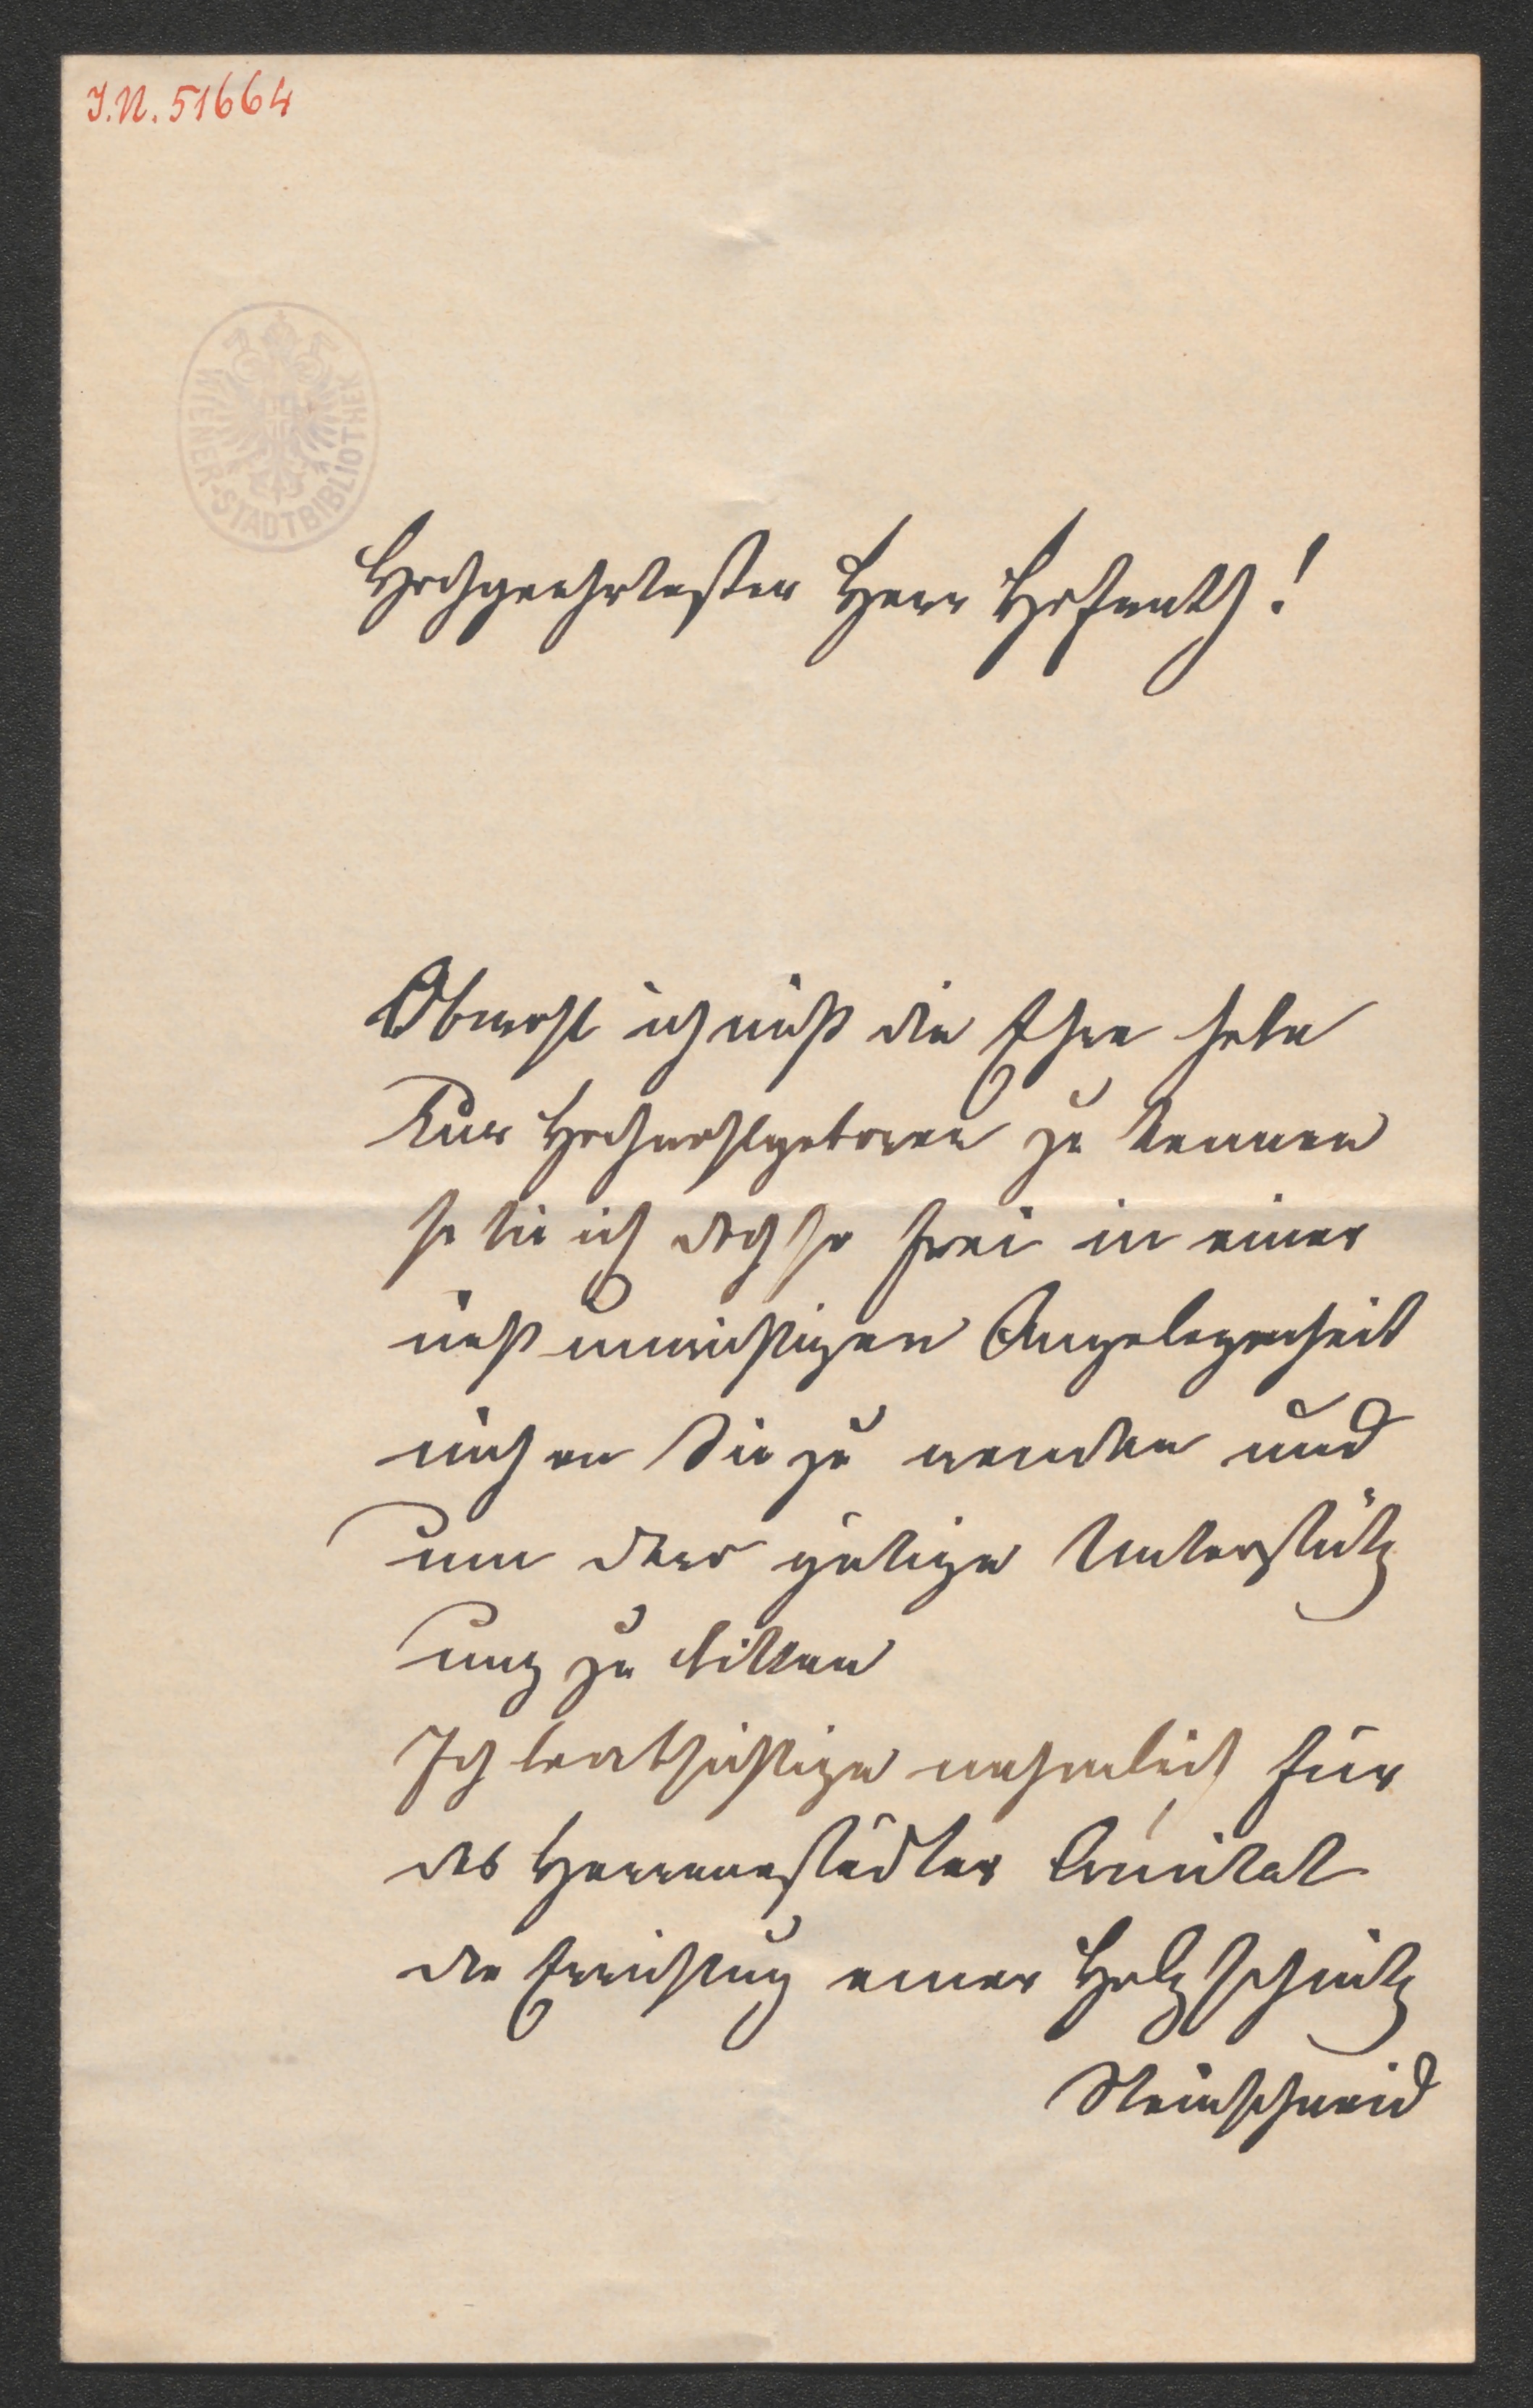 J.N. 51664
WIENER-STADTBIBLIOTHEK
Hochgeehrtester Herr Hofrath!
Obwohl ich nicht die Ehre habe
Euer Hochwohlgeboren zu kennen
so bin ich doch so frei in einer
nicht unwichtigen Angelegenheit
mich an Sie zu wenden und
um Ihre gütige Unterstütz
ung zu bitten
Ich beabsichtige nehmlich für
das Hermannstädter Comitat
die Errichtung einer Holzschnitz
Steinschneid